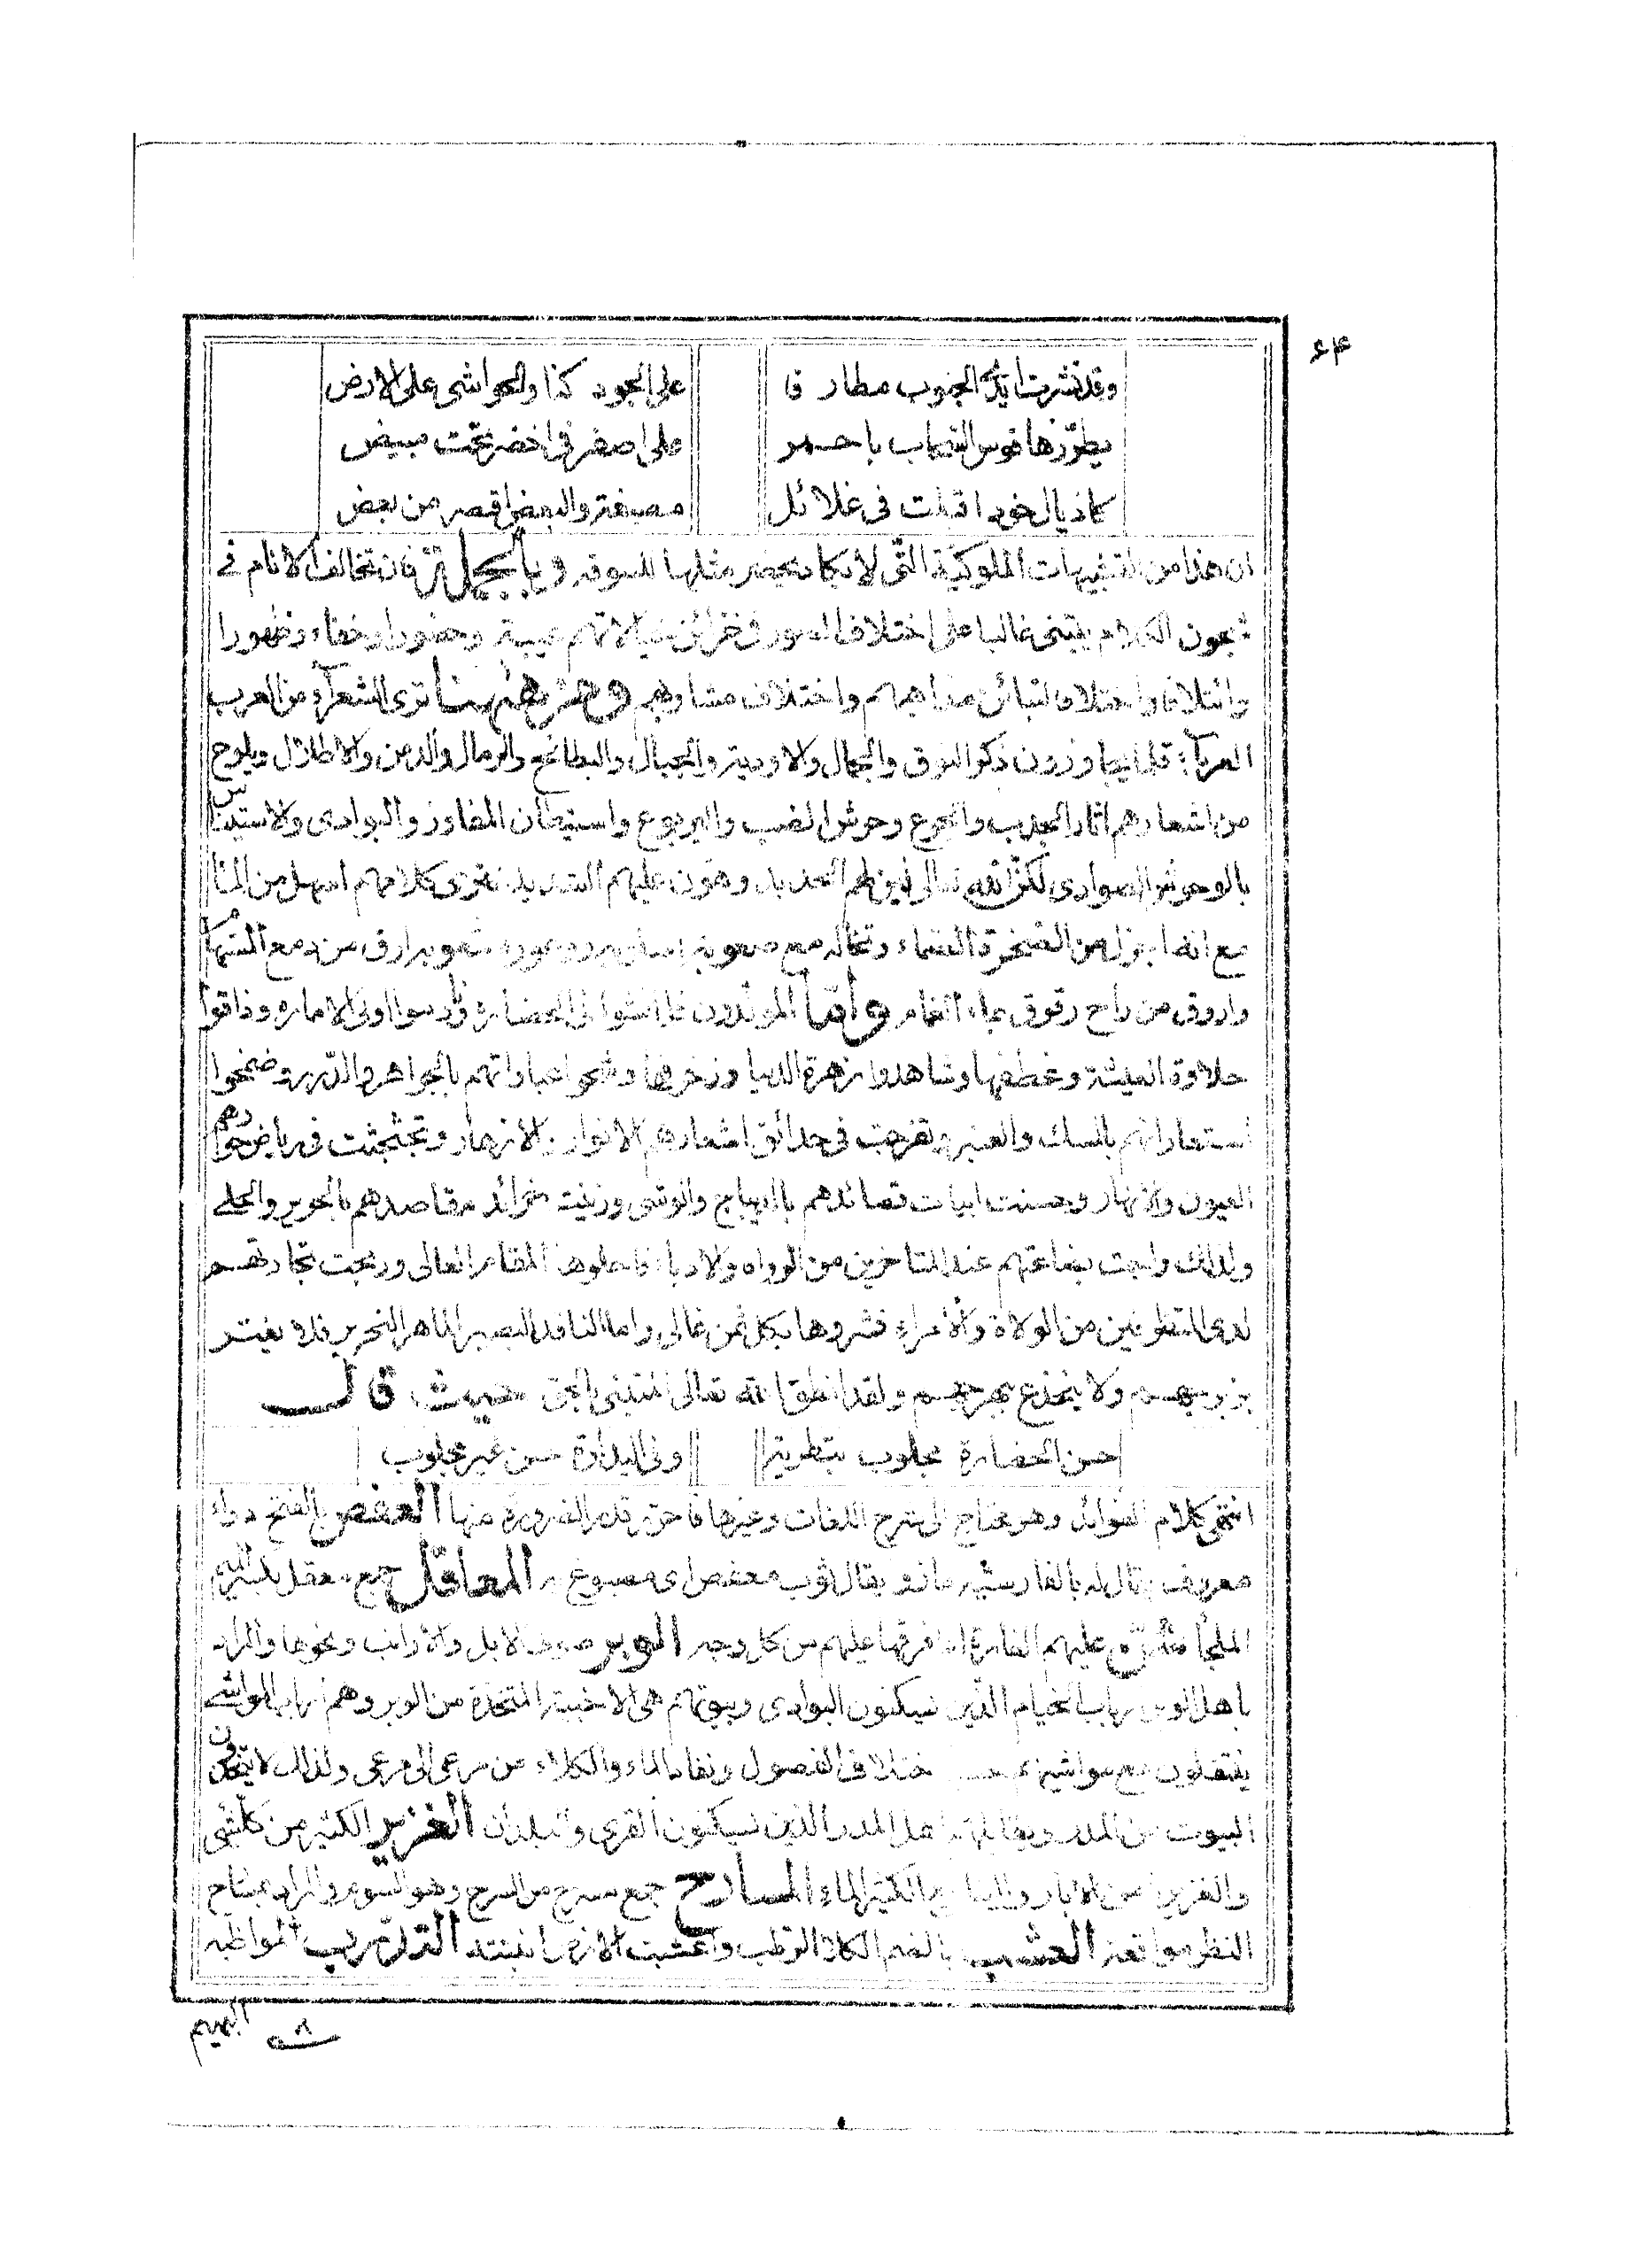 ۶۴
وقد نشرت ايدي الجنوب مطارفا على الجود كنا والحواشى على الارض
يطرزها قوس السحاب باحمر على اصفر فى اخضر تحت مبيض
كاذيال خود اقبلت فى غلائل مصبغة والبعض اقصر من بعض
ان هذا من التشبيهات الملوكية التى لا يكاد يحضر مثلها للسوقه وبالجملة فان تخالف الانام فى
شجون الكلام يبتنى غالبا على اختلاف الصور فى خزائن خيالاتهم غيبة وحضورا وخفاء وظهورا
وائتلافا واختلافا لتبائن مذاهبهم واختلاف مشاربهم ومن ههنا ترى الشعراء من العرب
العرباء قلما يتجاوزون ذكر النوق والجمال والاودية والجبال والبطائح والرمال والدمن والاطلال ويلوح
من اشعارهم اثار الجدب والجوع وحرش الضب واليربوع واستيطان المفاوز والبوادى والاستيناس
بالوحوش الصوادى لكن الله تعالى لهم الحديد وهون عليهم الشديد فترى كلامهم اسهل من الماء
مع انه اجزل من الصخرة الصماء وتخاله مع صعوبة ارق من دمع المستهام
واروق من راح رقرق بماء الغمام واما المولدون فلما نشوا فى الحضارة ودرسوا اولى الاماره وذاقوا
حلاوة العيشة وغطفها وشاهدوا زهرة الدنيا وزخرفها وشحوا عباراتهم بالجواهر والدرر وضمخوا
استعاراتهم بالمسك والعنبر وتفرجت فى حدائق اشعارهم الانوار والازهار وتجثجثت فى رياض حوارهم
العيون والانهار وحسنت ابيات قصائدهم بالديباج والوشى وزينت خرائد مقاصدهم بالحرير والحلى
ولذلك راجت بضاعتهم عند المتاخرين من الرواه والادباء فاحلوها المقام العالى وربحت تجارتهم
لدى المتطرفين من الولاة والامراء فشروها بكل ثمن غالى واما الناقد البصير الماهر النحرير فلا يغتر
بزبرجهم ولا ينخدع ببهرجهم ولقد انطق الله تعالى المتنبى بالحق حيث قال
حسن الحضارة مجلوب بتطرية وفى البداوة حسن غير مجلوب
انتهى كلام الفوائد وهو محتاج الى شرح اللغات وغيرها فاحق قدر الضرورة منها العفص بالفتح دواء
معروف يقال له بالفارسيه مازو يقال ثوب معفص اى مصبوغ به المعاقل جمع معقل بكسر
الملجأ عليهم الغارة اى فرقها عليهم من كل وجه الوبر صوف الابل والارانب ونحوها والمراد
باهل الوبر ارباب الخيام الذين يسكنون البوادى وبيوتهم هى الاخبية المتخذة من الوبر وهم ارباب المواشى
ينتقلون مع مواشيهم اختلاف الفصول ونفاد الماء والكلاء من مرعى الى مرعى ولذلك لا يتخذون
البيوت من المدر ويقابلهم اهل المدر الذين يسكنون القرى والبلدان الغزير الكثير من كل شى
والغزير من الابار والينابيع الكثير الماء المسارح جمع مسرح من السرح وهو السوم والمراد بمسارح
النظر مواقعه العشب بالضم الكلاء الرطب واعشبت الارض انبتته التدريب المواظبه